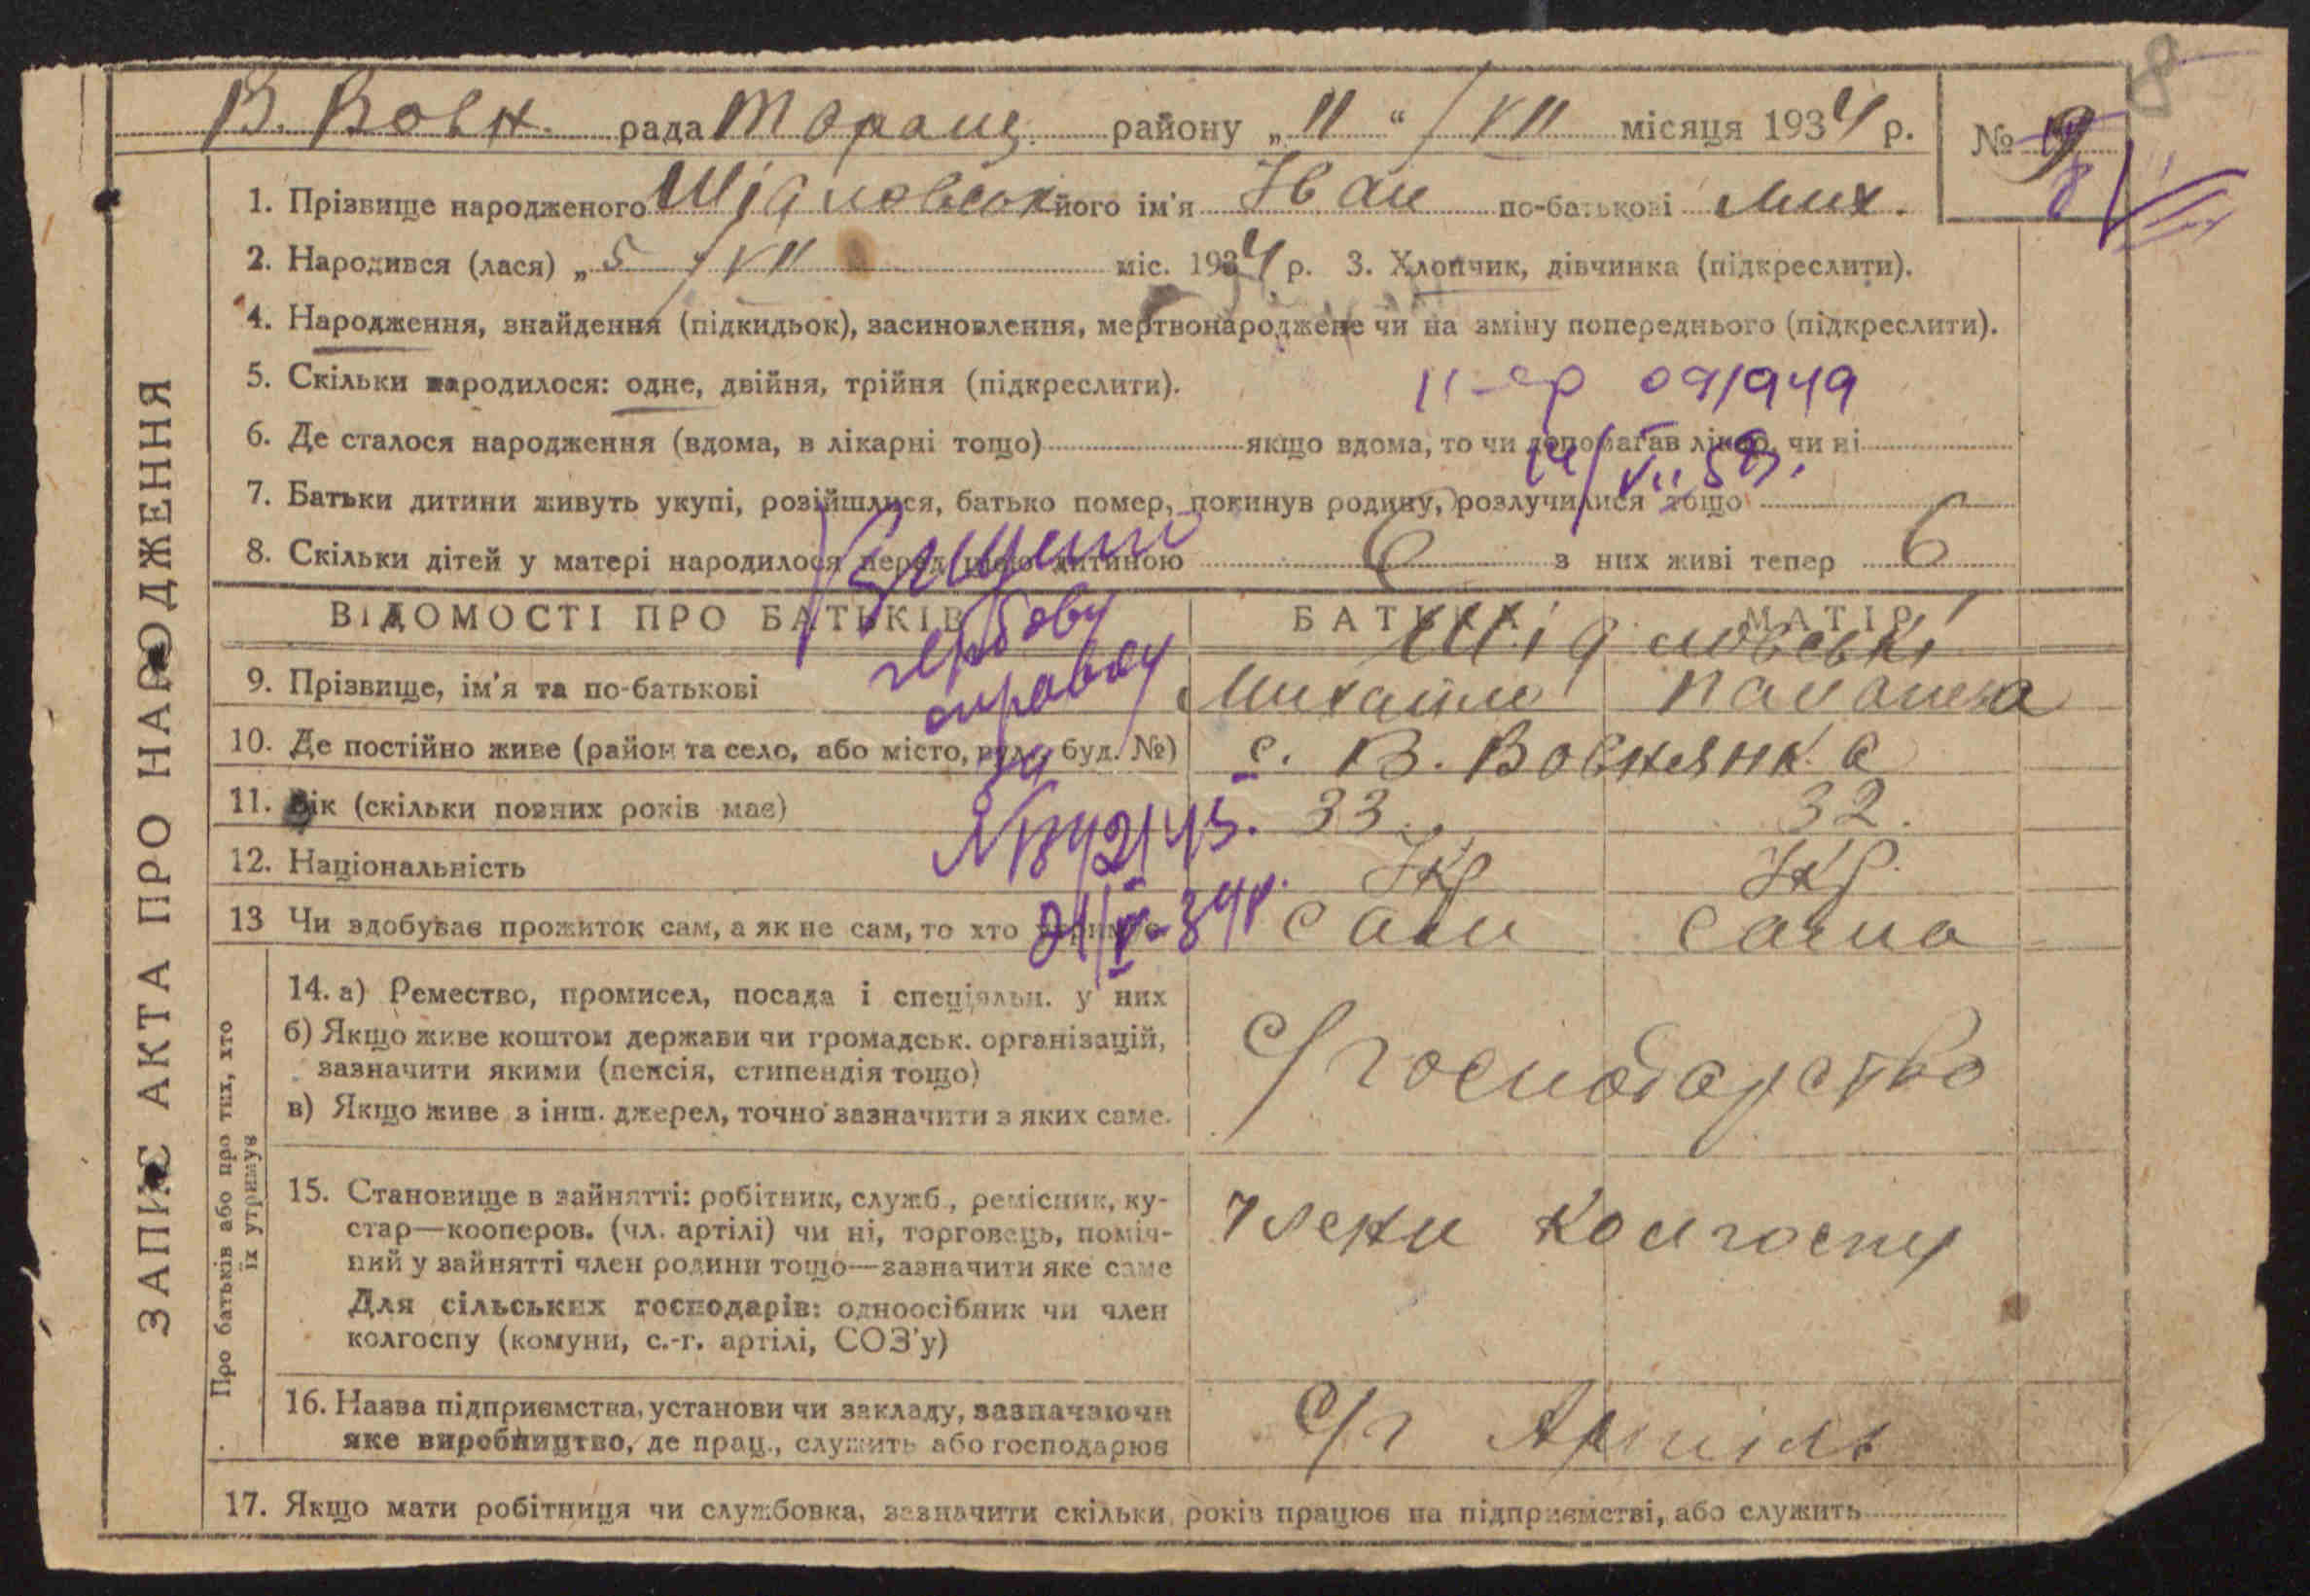 8
В. Вовн. рада Таращ. району „11“/VII місяця 1934 р. № 9
8
1. Прізвище народженого Шідловськ його ім'я Іван по-батькові Мих.
2. Народився (лася) „5/VII міс. 1934 р. 3. Хлопчик, дівчинка (підкреслити).
4. Народження, знайдення (підкидьок), засиновлення, мертвонароджене чи на зміну попереднього (підкреслити).
5. Скільки народилося: одне, двійня, трійня (підкреслити).
6. Де сталося народження (вдома, в лікарні тощо) якщо вдома, то чи допомагав лікар, чи ні
7. Батьки дитини живуть укупі, розійшлися, батько помер, покинув родину, розлучилися тощо
8. Скільки дітей у матері народилося перед цією дитиною 6 з них живі тепер 6
ВІДОМОСТІ ПРО БАТЬКІВ БАТЬКА МАТІР
Шідловські
9. Прізвище, ім'я та по-батькові Михайло Палажка
10. Де постійно живе (район та село, або місто, вул., буд. №) с. В. Вовнянка
11. Вік (скільки повних років має) 33. 32.
12. Національність Укр Укр.
13 Чи здобуває прожиток сам, а як не сам, то хто утримує сам сама
14. а) Ремество, промисел, посада і спеціяльн. у них
б) Якщо живе коштом держави чи громадськ. організацій,
зазначити якими (пенсія, стипендія тощо)
в) Якщо живе з інш. джерел, точно зазначити з яких саме.
с/господарство
15. Становище в зайнятті: робітник, служб., ремісник, ку-
стар—кооперов. (чл. артілі) чи ні, торговець, поміч-
ний у зайнятті член родини тощо—зазначити яке саме
Для сільських господарів: одноосібник чи член
колгоспу (комуни, с.-г. артілі, СОЗ'у)
члени колгоспу
16. Назва підприємства, установи чи закладу, зазначаючи
яке виробництво, де прац., служить або господарює
с/г Артіль
17. Якщо мати робітниця чи службовка, зазначити скільки років працює на підприємстві, або служить
ЗАПИС АКТА ПРО НАРОДЖЕННЯ
Про батьків або про тих, хто
їх утримує
091949
гербову
справку